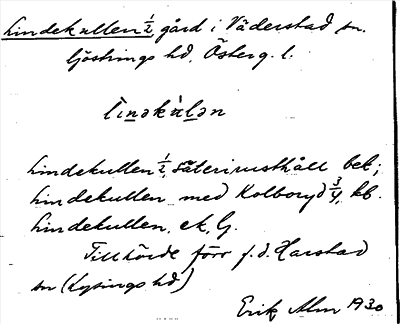 Lindekullen 1/2 gård i Väderstad sn.
Göstrings hd, Österg. l.
lìnəkùlən
Lindekullen 1/2, säterirusthåll bet;
Lindekullen med Kolboryd 3/4, kb.
Lindekullen, ek, G.
Tillhörde förr f.d. Harstad
sn (Lysings hd)
Erik Alm 1930